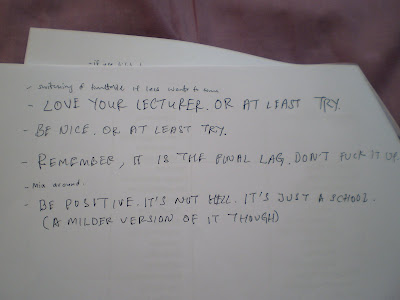 - switching of timetable if lect wants to
- LOVE YOUR LECTURER. OR AT LEAST TRY.
- BE NICE. OR AT LEAST TRY.
- REMEMBER, IT IS THE FINAL LAG. DON'T FUCK IT UP.
- mia around.
- BE POSITIVE. IT'S NOT HELL. IT'S JUST A SCHOOL.
(A MILDER VERSION OF IT THOUGH)